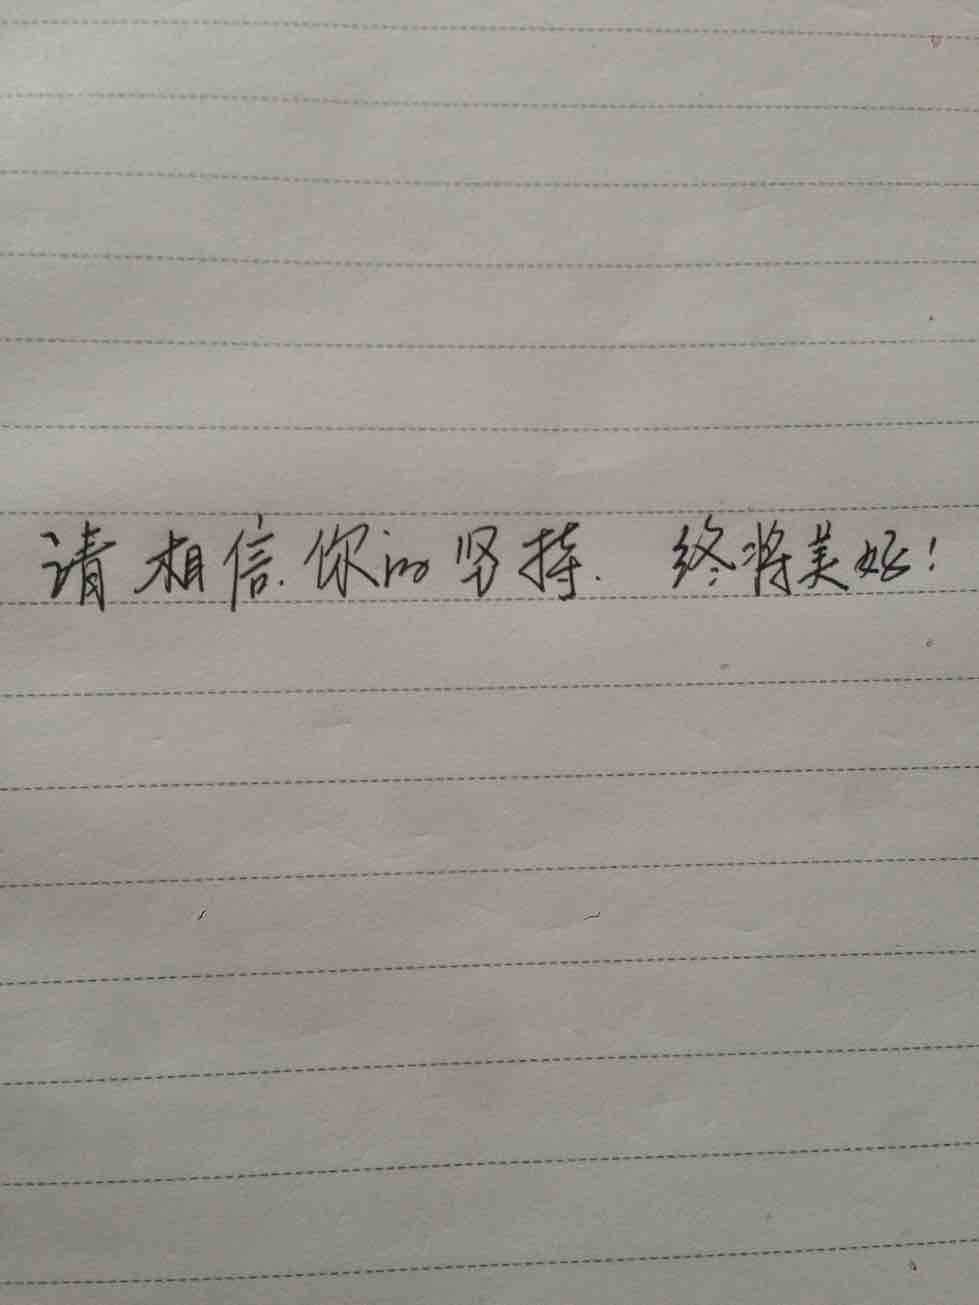 请相信.你的坚持.终将美好!